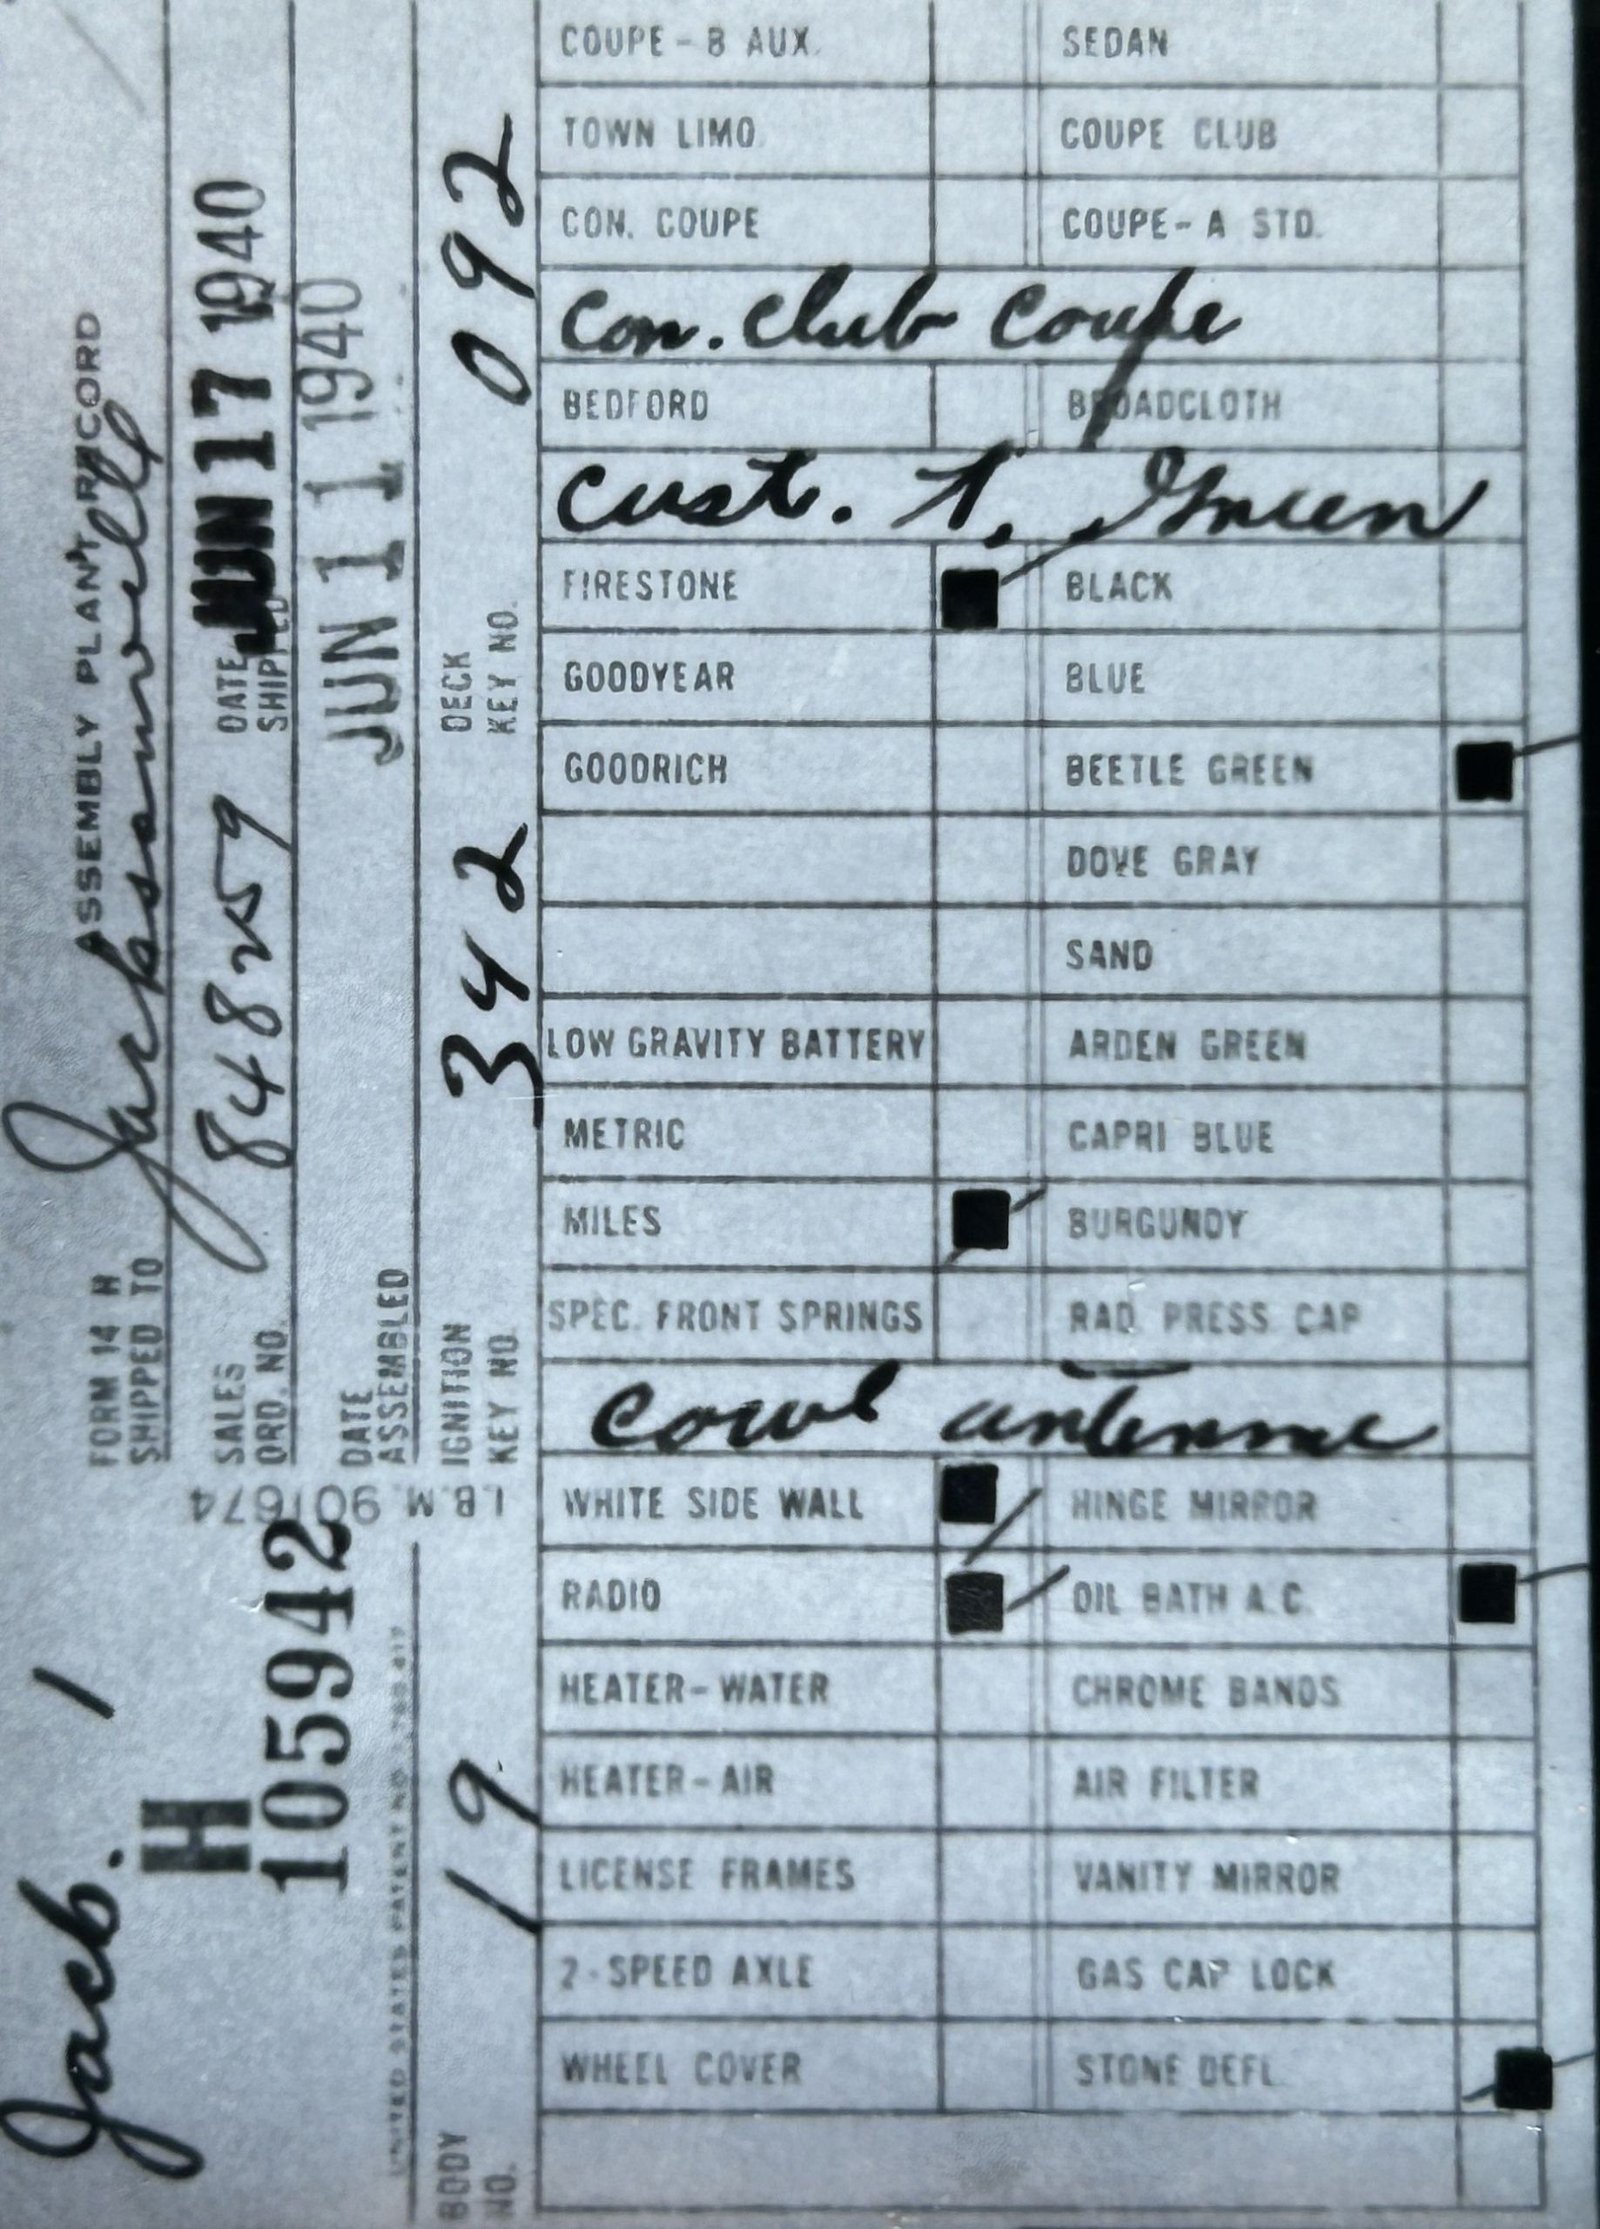 Jack. 1
H
105942
FORM 14 H
ASSEMBLY PLANT RECORD
SHIPPED TO Jacksonville
SALES ORD. NO. 848259
DATE SHIPPED JUN 17 1940
DATE ASSEMBLED JUN 11 1940
I.B.M. 901674
BODY NO. 19
IGNITION KEY NO. 342
DECK KEY NO. 092
COUPE - B AUX. SEDAN
TOWN LIMO. COUPE CLUB
CON. COUPE COUPE - A STD.
Con. Club Coupe
BEDFORD BROADCLOTH
Cust. T. Green
FIRESTONE BLACK
GOODYEAR BLUE
GOODRICH BEETLE GREEN
DOVE GRAY
SAND
LOW GRAVITY BATTERY ARDEN GREEN
METRIC CAPRI BLUE
MILES BURGUNDY
SPEC. FRONT SPRINGS RAD. PRESS CAP
Cowl antenna
WHITE SIDE WALL HINGE MIRROR
RADIO OIL BATH A.C.
HEATER - WATER CHROME BANDS
HEATER - AIR AIR FILTER
LICENSE FRAMES VANITY MIRROR
2 - SPEED AXLE GAS CAP LOCK
WHEEL COVER STONE DEFL.